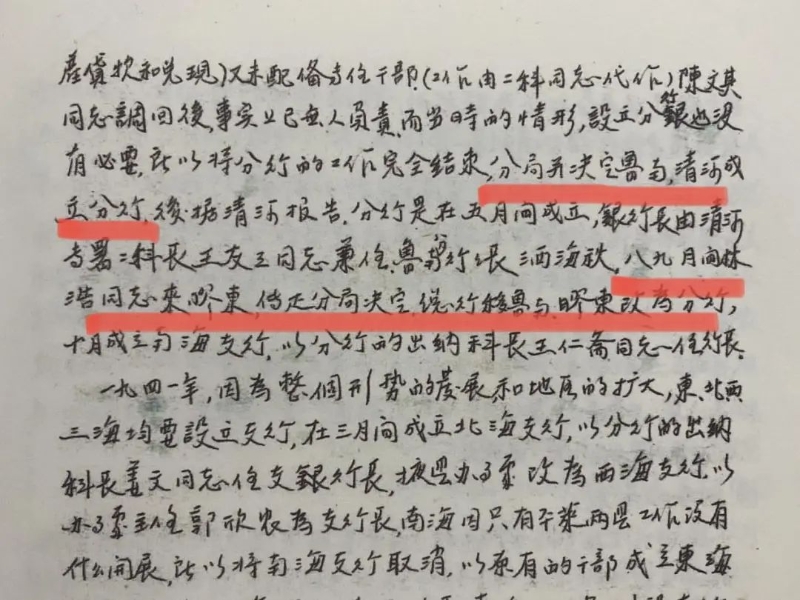 產貸款和兌現)又未配備专任干部(工作由二科同志代作)陳文其
同志調回後,事实上已無人負責,而当時的情形,設立分銀行也没
有必要,所以将分行的工作完全結束,分局并决定魯南,清河成
立分行,後据清河报告,分行是在五月间成立,銀行長由清河
专署二科長王友三同志兼任,魯南分行行長洒海秋,八九月间林
浩同志來膠東,传达分局决定,總行移魯南,膠東改为分行,
十月成立南海支行,以分行的出纳科長王仁斋同志任行長.
一九四一年,因為整個形势的發展和地区的扩大,東,北,西
三海均要設立支行,在三月间成立北海支行,以分行的出纳
科長姜文同志任支銀行長,掖县办事處改為西海支行,以
办事處主任郭欣农為支行長,南海因只有平萊两县工作没有
什么開展,所以将南海支行取消,以原有的干部成立東海